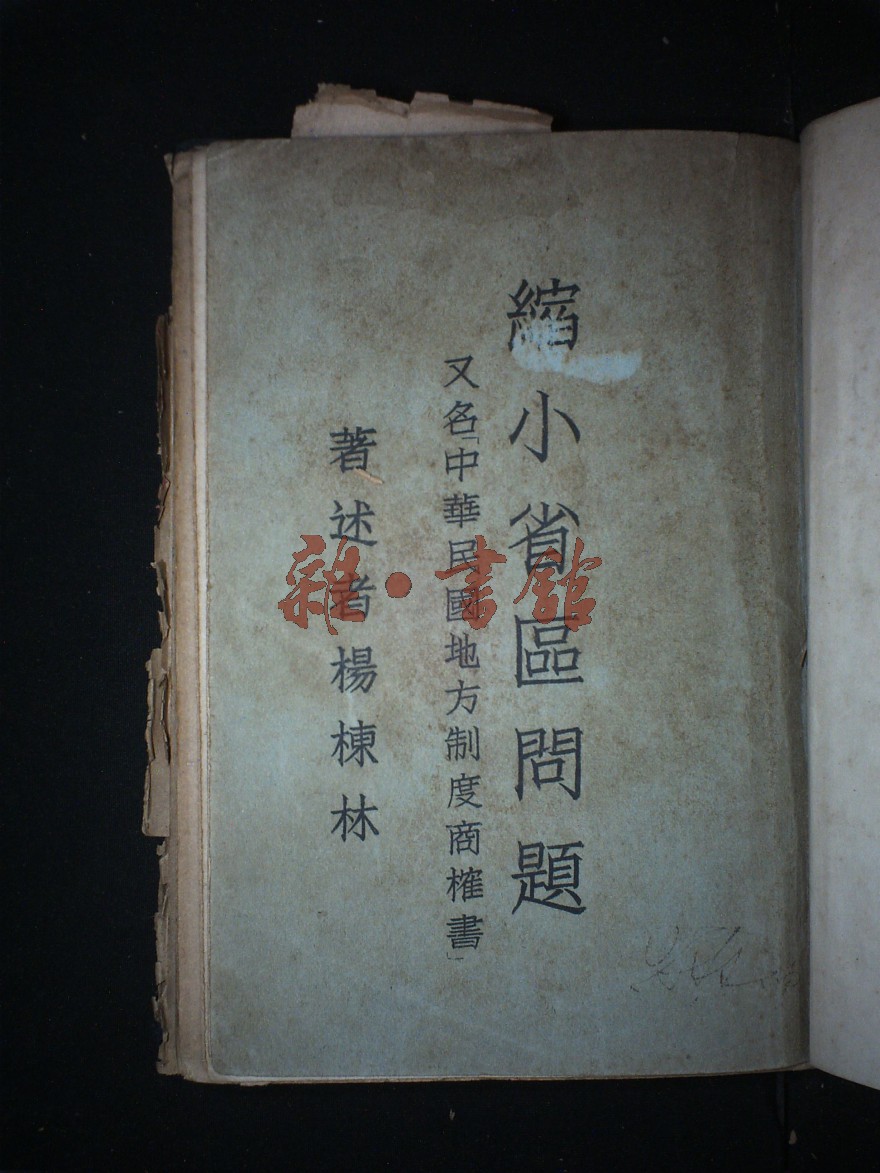 縮小省區問題
又名「中華民國地方制度商榷書」
著述者楊棟林
雜·書館